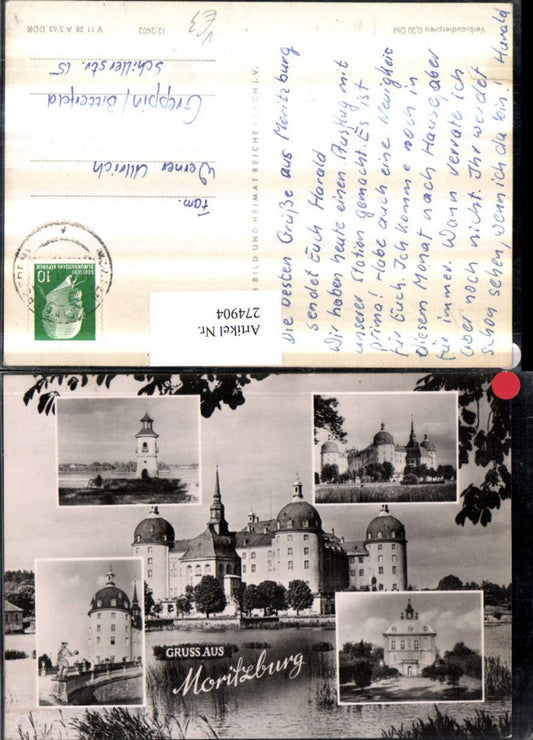 Die besten Grüße aus Moritzburg
sendet Euch Harald
Wir haben heute einen Ausflug mit
unserer Station gemacht. Es ist
prima! Habe auch eine Neuigkeit
für Euch. Ich komme noch in
diesem Monat nach Hause, aber
für immer. Wann verrate ich
aber noch nicht. Ihr werdet
schon sehen, wenn ich da bin! Harald
BILD UND HEIMAT REICHENBACH I. V.
Fam.
Werner Ullrich
Greppin/Bitterfeld
Schillerstr. 15
V 11 28 A 3/63 DDR
12/2402
Verbraucherpreis 0,20 DM
10
DEUTSCHE
DEMOKRATISCHE REPUBLIK
Artikel Nr.
274904
GRUSS AUS
Moritzburg